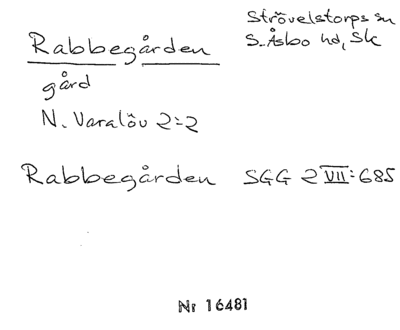 Strövelstorps sn
S. Åsbo hd, Sk
Rabbegården
gård
N. Varalöv 2=2
Rabbegården SGG 2 VII:685
Nr 16481